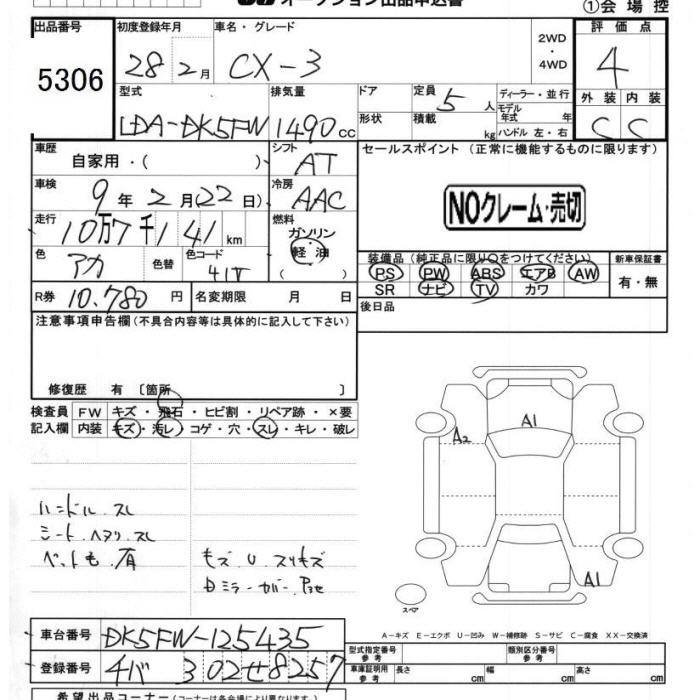 オークション出品申込書 ①会場控
出品番号 初度登録年月 車名・グレード 2WD・4WD 評価点
5306 28 2月 CX-3 4
型式 排気量 ドア 定員 5人 ディーラー・並行 外装 内装
LDA-DK5FW 1490cc 形状 積載 kg モデル年式 年 ハンドル 左・右 C C
車歴 自家用・( ) シフト AT セールスポイント (正常に機能するものに限ります)
車検 9年2月(22日) 冷房 AAC NOクレーム・売切
走行 10万7千141km 燃料 ガソリン 軽油 ( )
色 アカ 色替 色コード 41V 装備品(純正品に限り○をつけてください) 新車保証書
PS PW ABS エアB AW 有・無
SR ナビ TV カワ
R券 10.780円 名変期限 月 日 後日品
注意事項申告欄(不具合内容等は具体的に記入して下さい)
修復歴 有〔箇所 〕
検査員 FW キズ・飛石・ヒビ割・リペア跡・×要
記入欄 内装 キズ・汚レ・コゲ・穴・スレ・キレ・破レ
A1
A2
ハンドル.スレ
シート.ヘタリ.スレ
ペットも.有
モズ U スリキズ
A1
スペア
A-キズ E-エクボ U-凹み W-補修跡 S-サビ C-腐食 XX-交換済
車台番号 DK5FW-125435 型式指定番号 参考 類別区分番号 参考
登録番号 302せ8257 車庫証明用 参考 長さ cm 幅 cm 高さ cm
希望出品コーナー(コーナーは各会場により異なります)